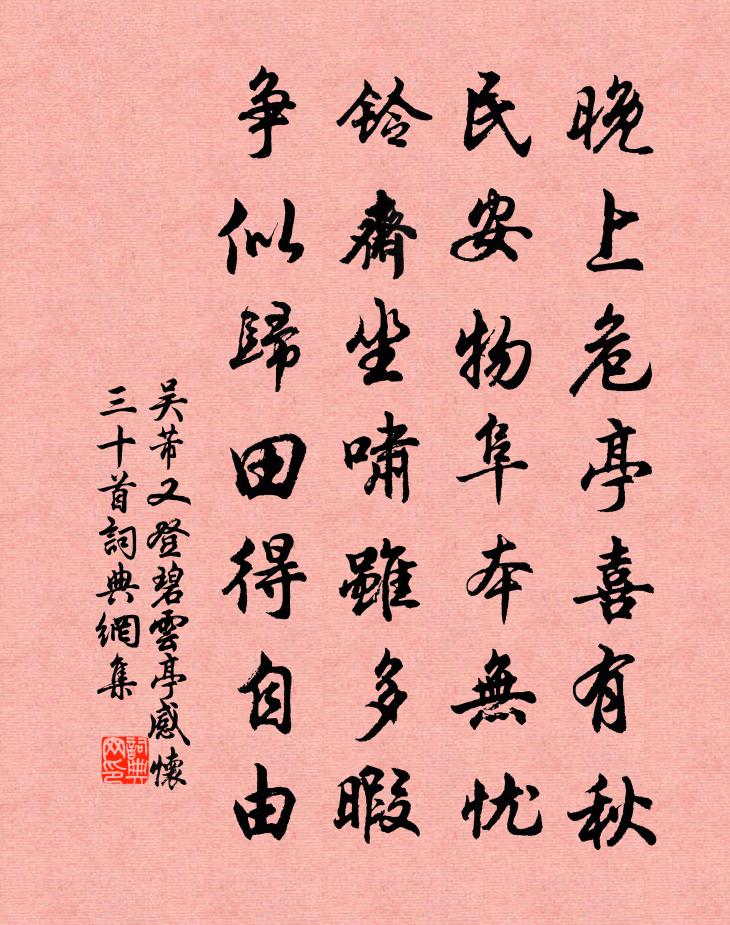 晚上危亭喜有秋
民安物阜本無忧
鈴齋坐啸雖多暇
争似歸田得自由
吴芾又登碧雲亭感懷
三十首詞典網集
詞典网印